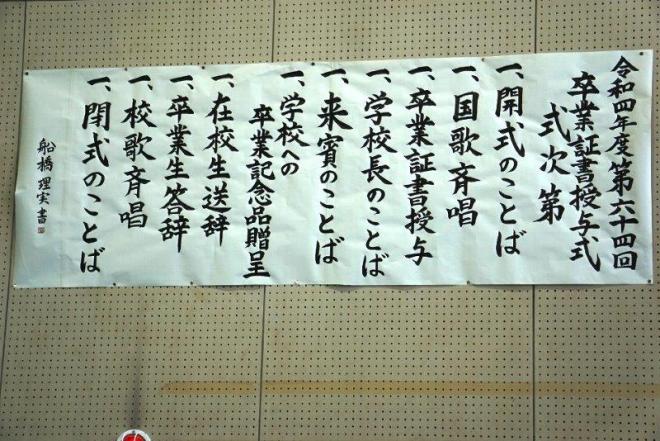 令和四年度第六十四回
卒業証書授与式
式次第
一、開式のことば
一、国歌斉唱
一、卒業証書授与
一、学校長のことば
一、来賓のことば
一、学校への
卒業記念品贈呈
一、在校生送辞
一、卒業生答辞
一、校歌斉唱
一、閉式のことば
船橋理実書